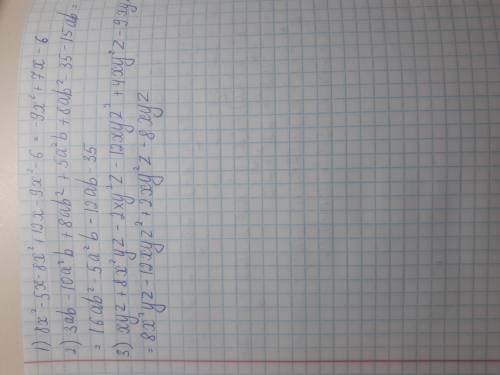 1) 8x² - 5x - 8x² + 12x - 9x² - 6 = -9x² + 7x - 6
2) 3ab - 10a²b + 8ab² + 5a²b + 8ab² - 35 - 15ab =
= 16ab² - 5a²b - 12ab - 35
3) xyz + 8x²yz - 2xy²z - 12xyz² + 4xy²z - 9xyz
= 8x²yz - 12xyz² + 2xy²z - 8xyz